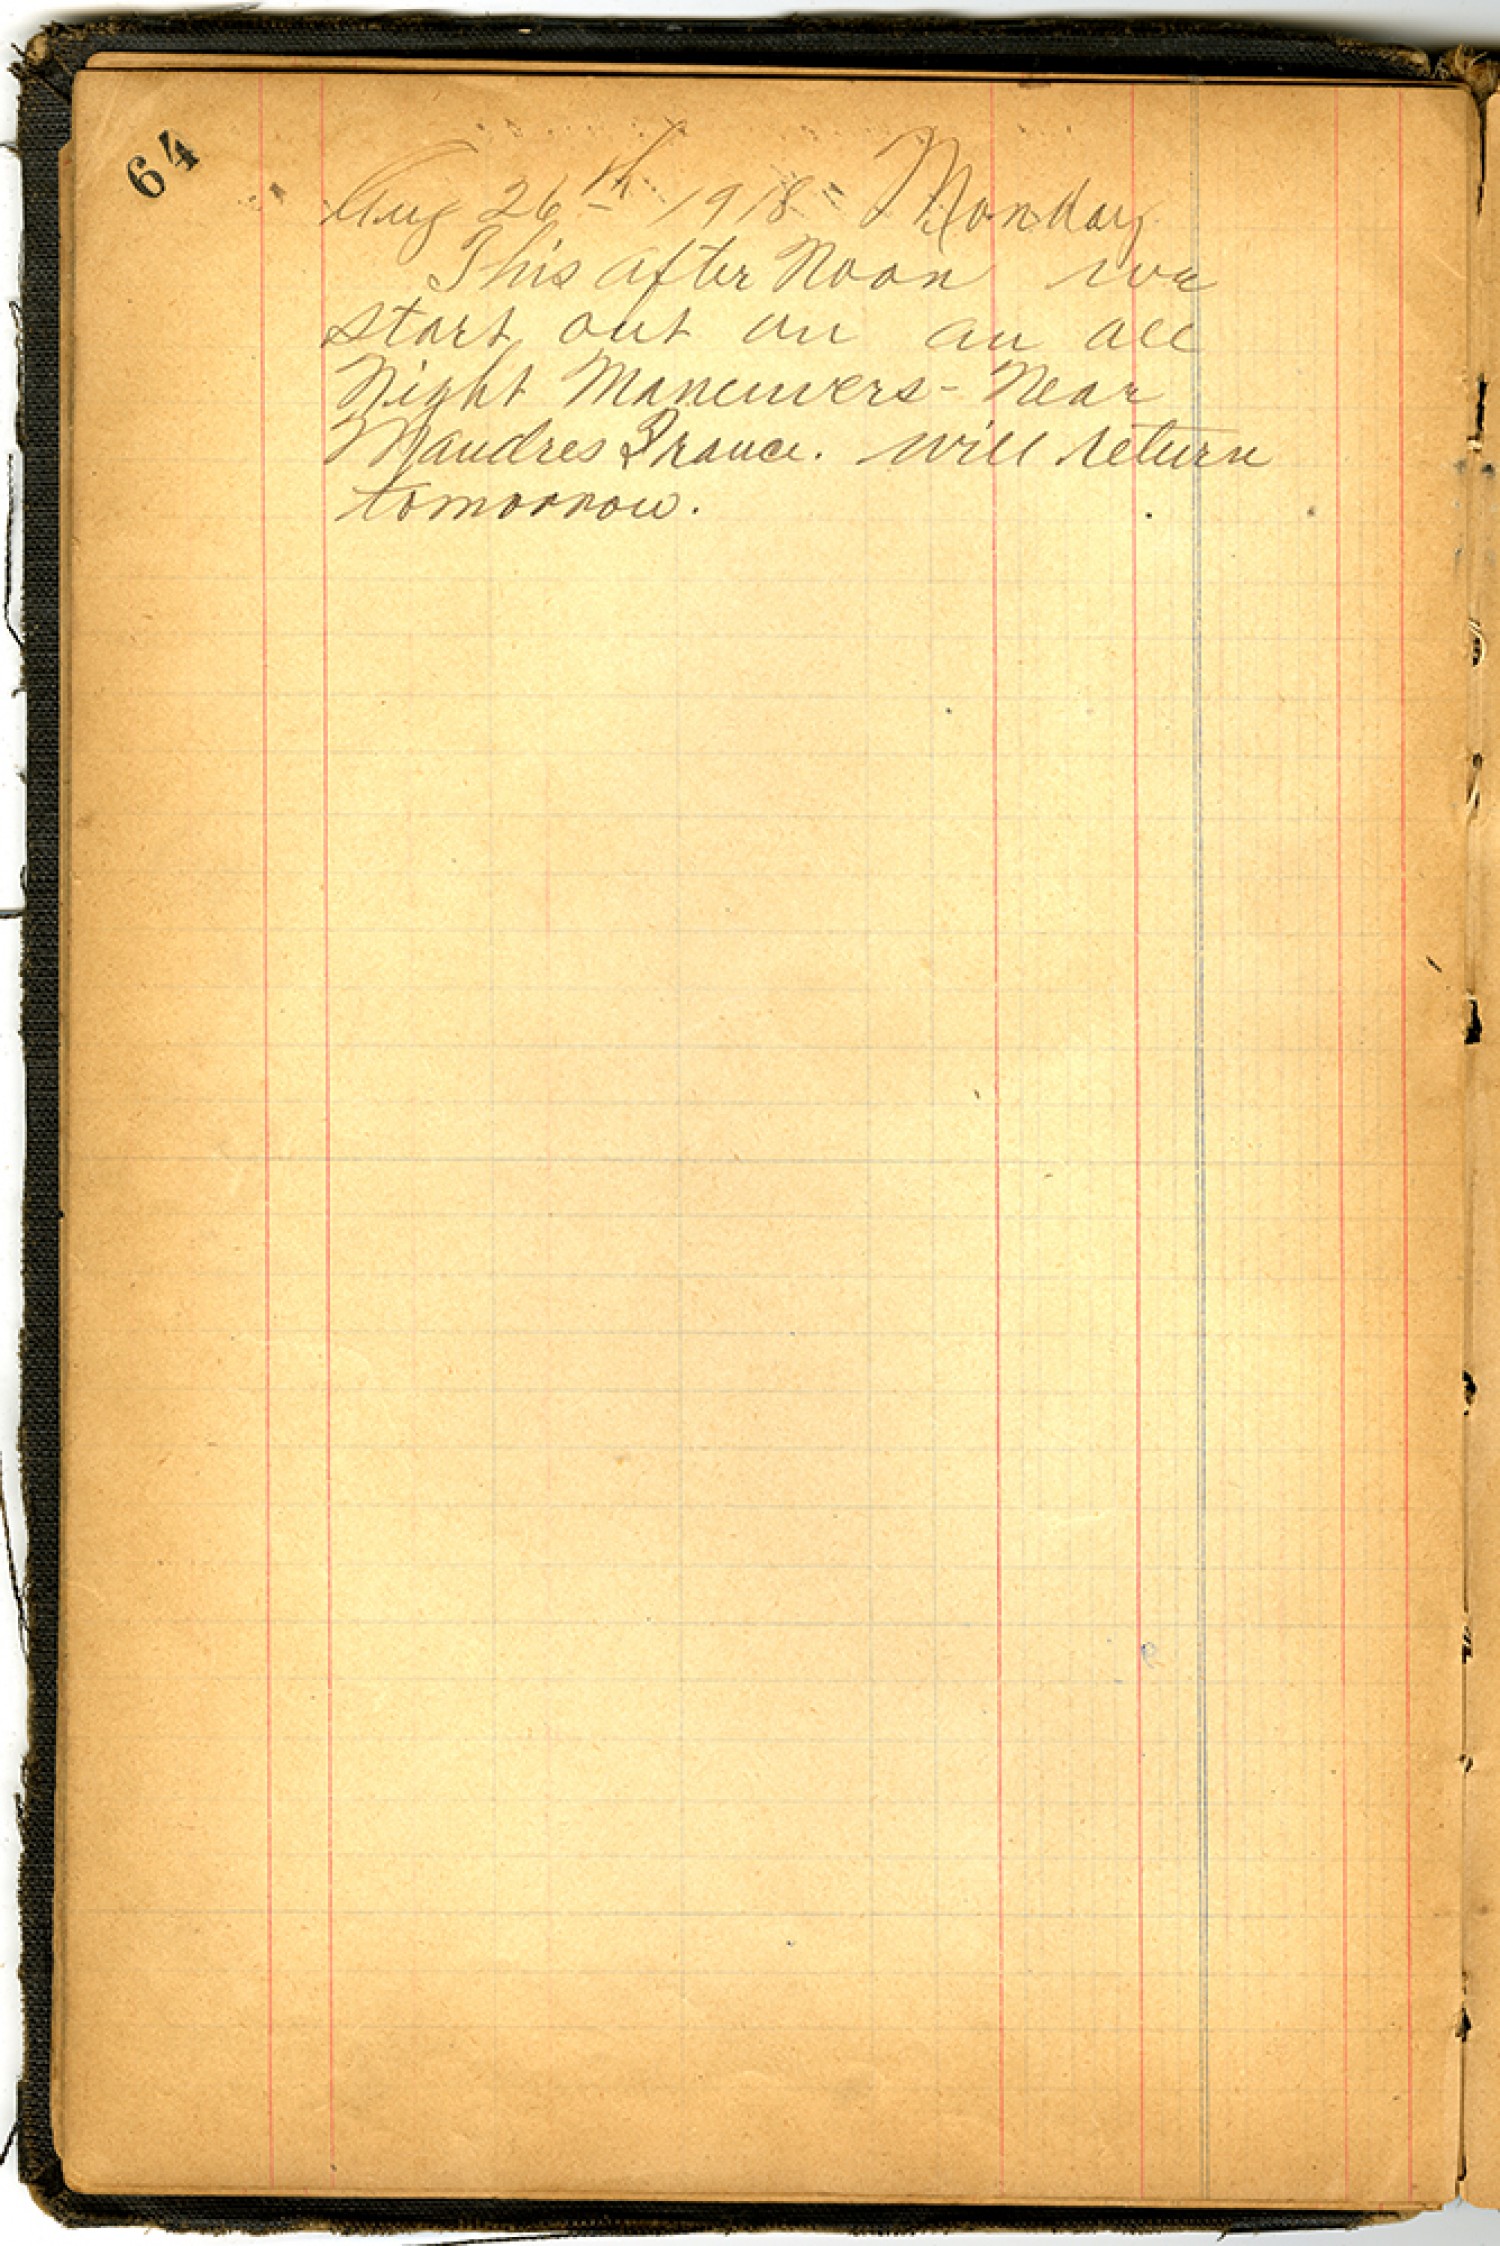 64
Aug 26th 1918 Monday
This after Noon we
start out on an all
Night Maneuvers - Near
Mandres France. will return
tomorrow.